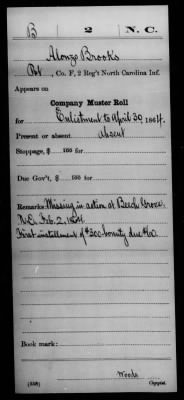 B 2 N.C.
Alonzo Brooks
Pvt, Co. F, 2 Reg't North Carolina Inf.
Appears on
Company Muster Roll
for Enlistment to April 30, 1864.
Present or absent absent
Stoppage, $ 100 for
Due Gov't, $ 100 for
Remarks: Missing in action at Beech Grove,
N.C. Feb. 2, 1864.
First installment of $300 bounty due $60.
Book mark:
Woods
(358) Copyist.